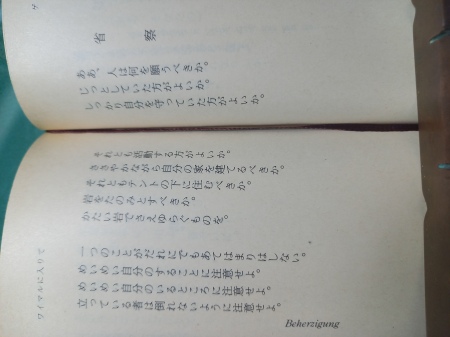 省察
ああ、人は何を願うべきか。
じっとしていた方がよいか。
しっかり自分を守っていた方がよいか。
ワイマルに入りて
それとも活動する方がよいか。
ささやかながら自分の家を建てるべきか。
それともテントの下に住むべきか。
岩をたのみとすべきか。
かたい岩でさえゆらぐものを。
一つのことがだれにでもあてはまりはしない。
めいめい自分のすることに注意せよ。
めいめい自分のいるところに注意せよ。
立っている者は倒れないように注意せよ。
Beherzigung